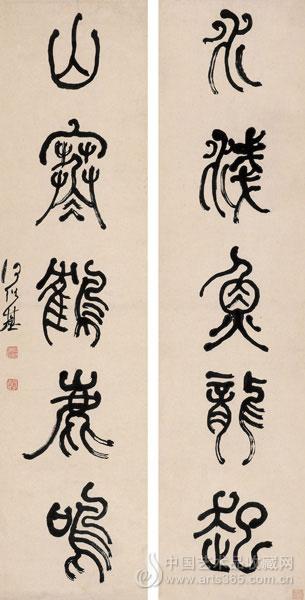 水淺魚龍起
山寒鶴鹿鳴
何紹基
中国艺术品收藏网
www.arts365.com.cn